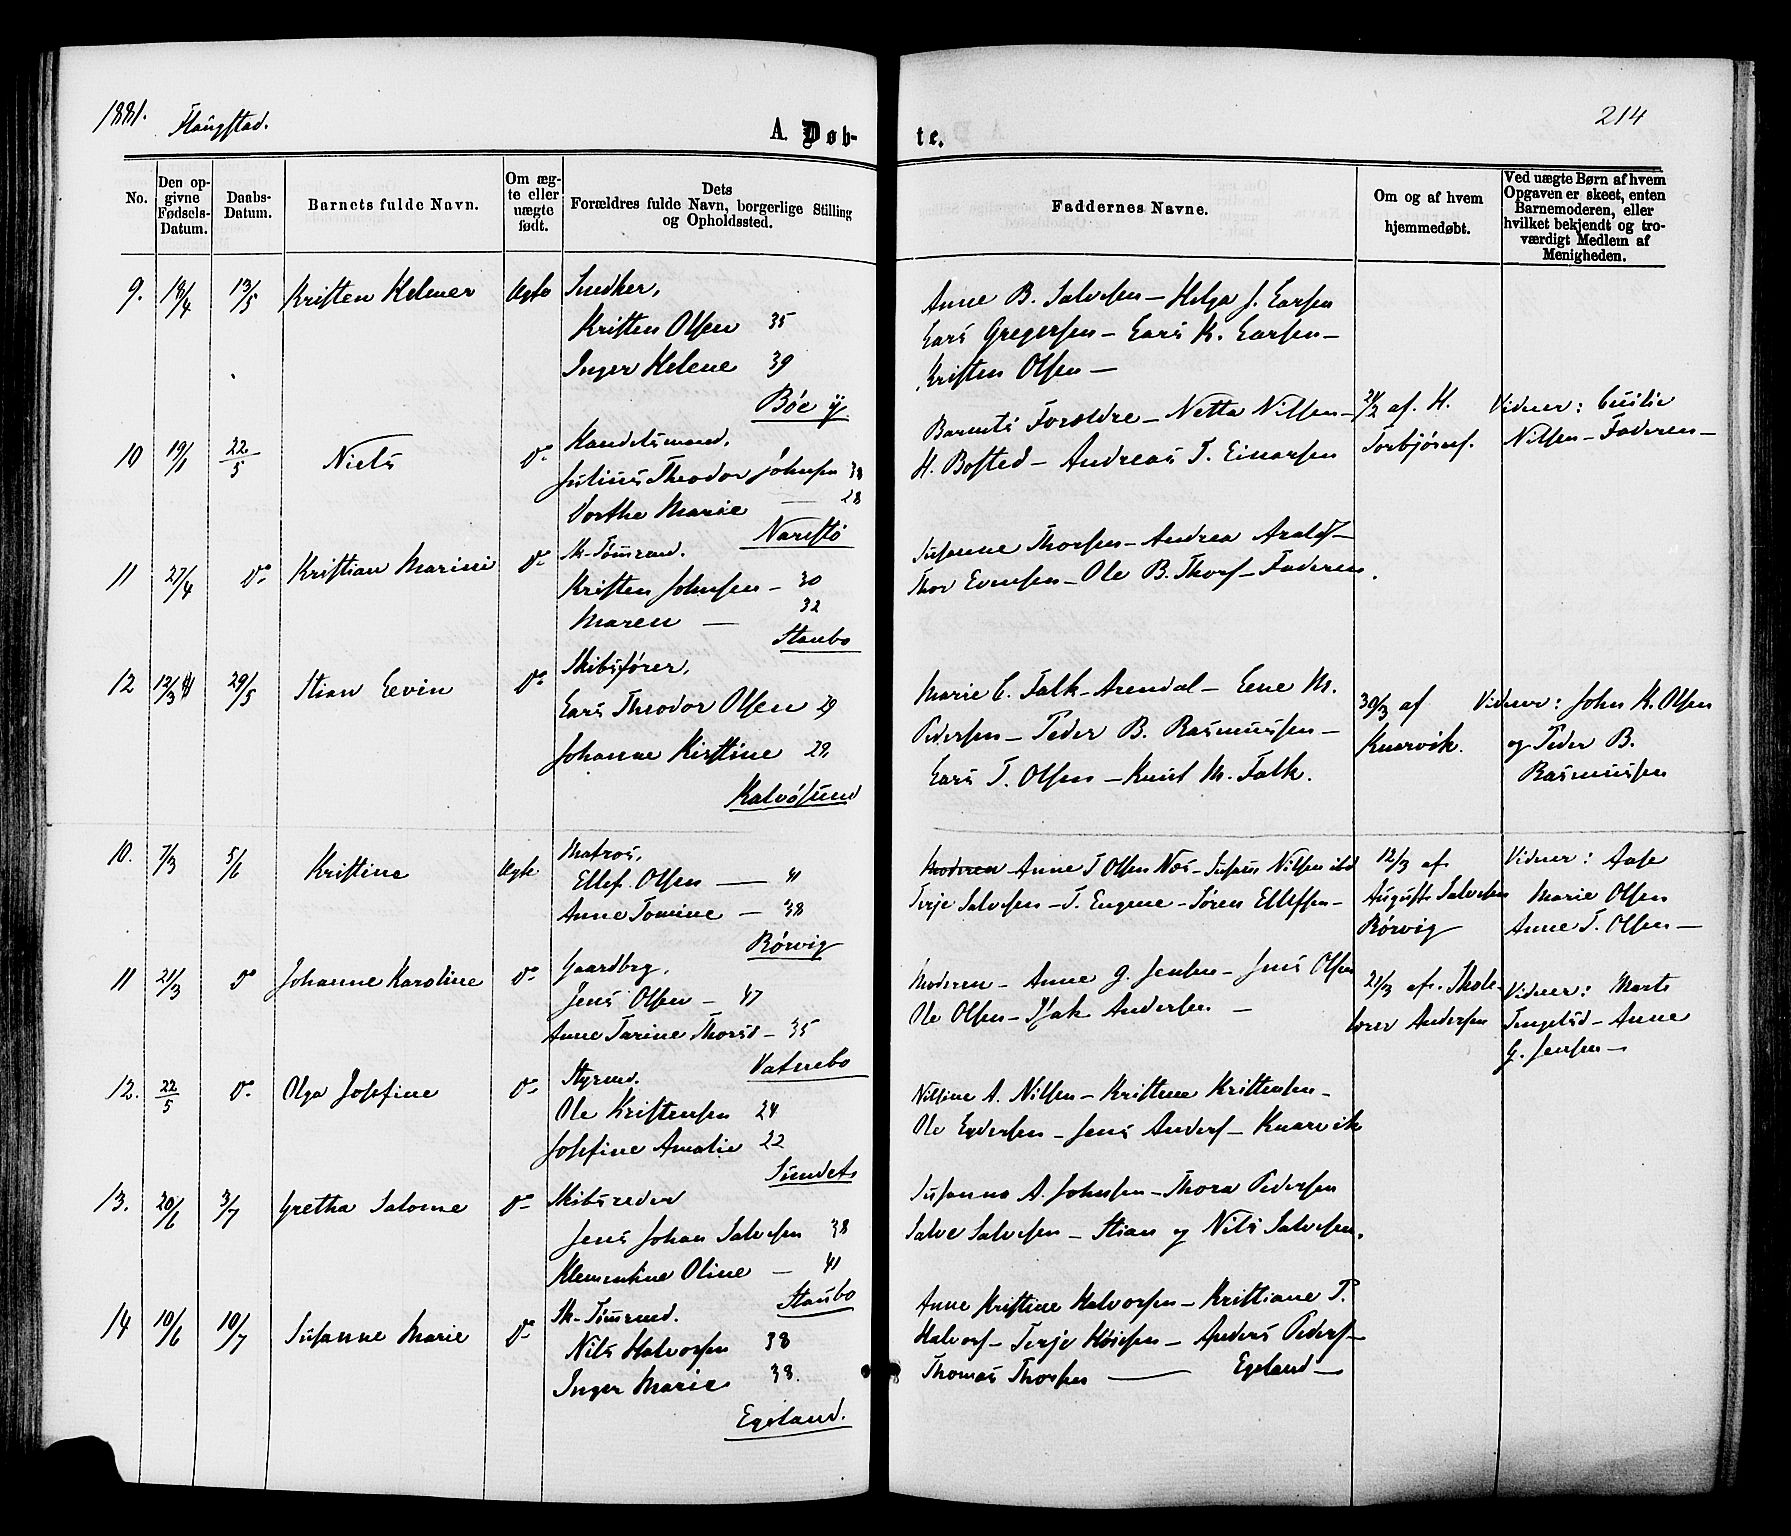 1881. Flangstad.
A. Døb-
te.
214
No.
Den op-
givne
Fødsels-
Datum.
Daabs-
Datum.
Barnets fulde Navn.
Om æg-
te eller
uægte
født.
Dets
Forældres fulde Navn, borgerlige Stilling
og Opholdssted.
Faddernes Navne.
Om og af hvem
hjemmedøbt.
Ved uægte Børn af hvem
Opgaven er skeet, enten
Barnemoderen, eller
hvilket bekjendt og tro-
værdigt Medlem af
Menigheden.
9. 18/4 13/5 Kristen Helmer Ægte Snedker,
Kristen Olsen 35
Inger Helene 39
Bøe y
Anne B. Salvesen - Helga J. Larsen
Lars Gregersen - Lars K. Larsen -
Kristen Olsen -
10 19/1 22/5 Niels Do Handelsmand,
Julius Theodor Johnsen 38
Dorthe Marie — 28
Narestø
Barnets Forældre - Netta Nilsen -
H. Bosted - Andreas T. Einarsen
21/2 af H.
Torbjørns.
Vidner: Cecilie
Nilsen - Faderen -
11 27/4 Do Kristian Marini Do Sk-Tømmd.
Kristen Johnsen - 30
Maren — 32
Staubo
Susanne Thorsen - Andrea Aralds -
Thor Evensen - Ole B. Thors - Faderen.
12 12/3 29/5 Stian Levin Do Skibsfører,
Lars Theodor Olsen 29
Johanne Kirstine 29,
Kalvøsund
Marie C. Falk - Arendal - Lene M.
Pedersen - Peder B. Rasmussen -
Lars T. Olsen - Knut M. Falk.
30/3 af
Knarvik.
Vidner: John K. Olsen
og Peder B.
Rasmussen
10. 7/3 5/6 Kristine Ægte Matros,
Ellef. Olsen — 41
Anne Tomine — 38
Rørvig
Moderen - Anne T Olsen Næs - Susans Nilsen ibd
Terje Salvesen - T. Eugene - Søren Ellefsen -
12/3 af
August Salvesen
Rørvig
Vidner: Aase
Marie Olsen
Anne T. Olsen —
11 21/3 Do Johanne Karoline Do Gaardbrg,
Jens Olsen - 47
Anne Tarine Thorsd - 35
Vatnebo
Moderen - Anne G. Jensen - Jens Olsen
Ole Olsen - Isak Andersen —
21/3 af Skole-
lærer Andersen
Vidner: Marte
Tengelsd - Anne
G. Jensen —
12. 22/5 Do Olga Josefine Do Styrmd.
Ole Kristensen 24
Josefine Amalie 22
Sundets
Nilsine A. Nilsen - Kristine Kristensen -
Ole Pedersen - Jens Anders - Knarvik
13. 20/6 3/7 Gretha Salome Do Skibsreder
Jens Johan Salvesen 38
Klementine Oline — 41
Staubo
Susanna A. Johnsen - Thora Pedersen
Salve Salvesen - Stian og Nils Salvesen.
14 10/6 10/7 Susanne Marie Do Sk-Tømmd.
Nils Halvorsen 38
Inger Marie 38.
Egeland.
Anne Kristine Halvorsen - Kristiane T.
Halvors - Terje - Anders Peders -
Thomas Thorsen — Egeland —